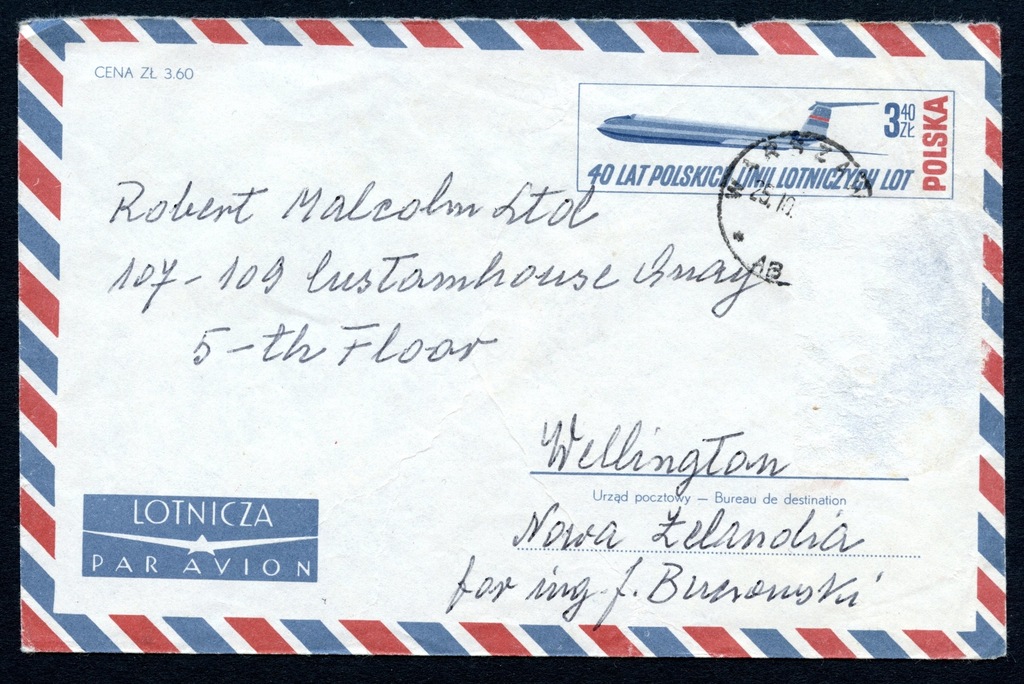 CENA ZŁ 3.60
3 40 ZŁ
POLSKA
40 LAT POLSKICH LINII LOTNICZYCH LOT
WARSZAW
25.10.
* AB
Robert Malcolm Ltd
107-109 Custamhouse Quay
5-th Floor
Wellington
Urząd pocztowy – Bureau de destination
Nowa Zelandia
for ing. J.
LOTNICZA
PAR AVION